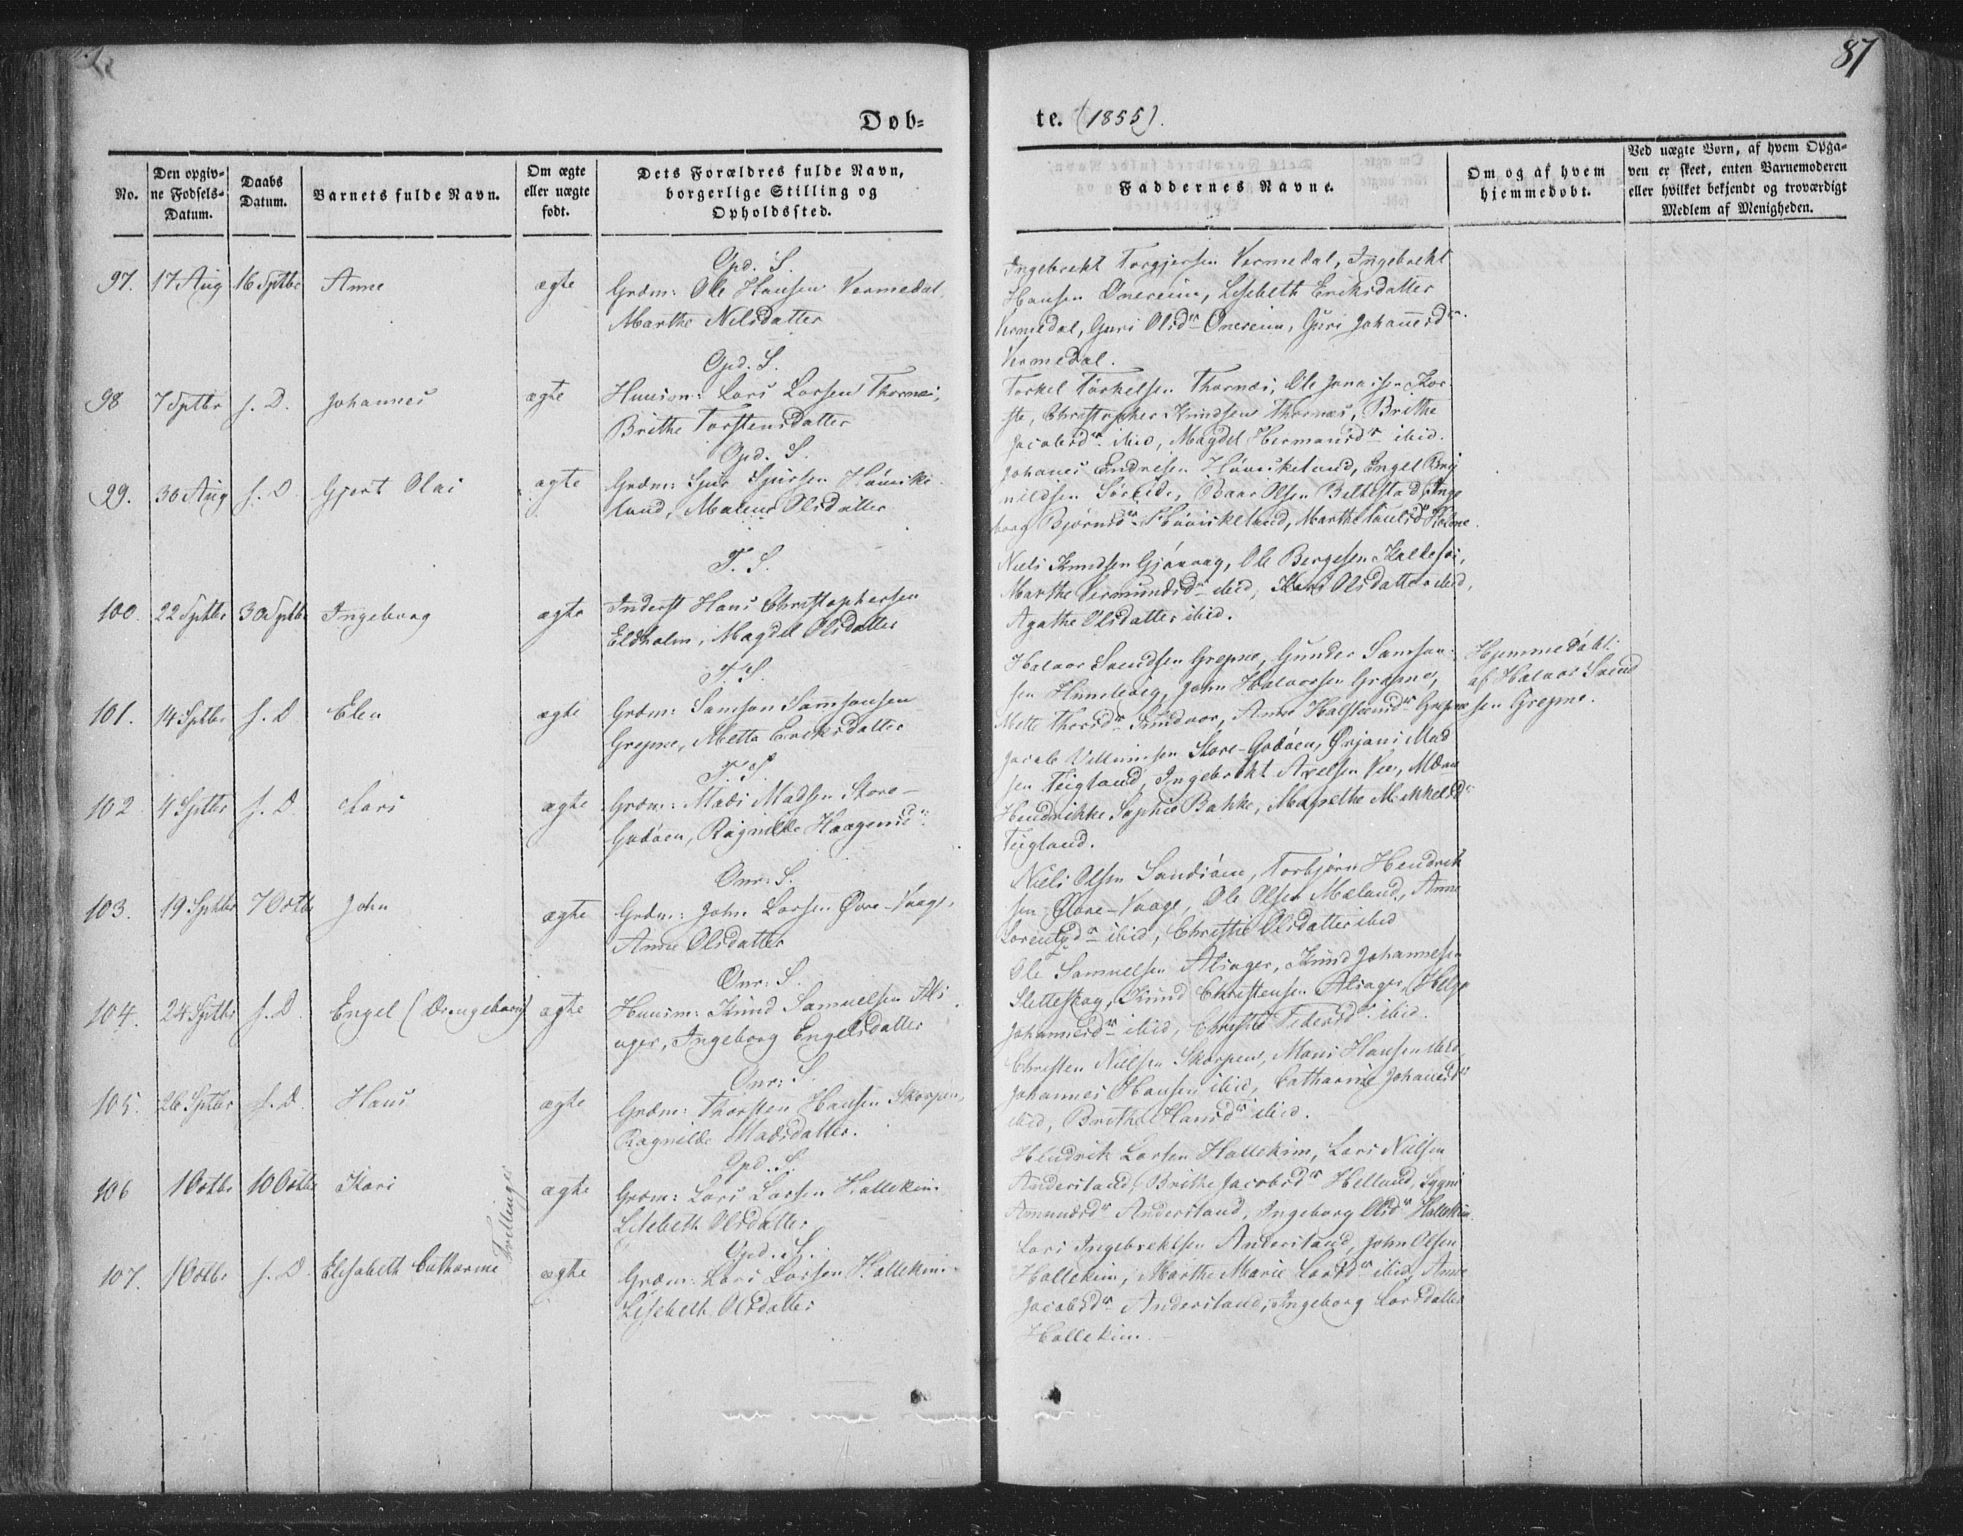 87
Døb-
te. (1855).
No.
Den opgiv-
ne Fødsels-
Datum.
Daabs
Datum.
Barnets fulde Navn.
Om ægte
eller uægte
født.
Dets Forældres fulde Navn,
borgerlige Stilling og
Opholdssted.
Faddernes Navne.
Om og af hvem
hjemmedøbt.
Ved uægte Børn, af hvem Opga-
ven er skeet, enten Barnemoderen
eller hvilket bekjendt og troværdigt
Medlem af Menigheden.
97. 17 Aug 16 Sptbr Anne ægte
Opd. S.
Grdm: Ole Hansen Vermedal,
Marthe Nilsdatter
Ingebrekt Torgjersen Vermedal, Ingebrekt
Hansen Onereim, Lisebeth Eriksdatter
Vermedal, Guri Olsdr Onereim, Guri Johannesdr
Vermedal.
98 7 Sptbr s. D. Johannes ægte
Opd. S.
Huusm: Lars Larsen Thornæs,
Brithe Torstensdatter
Torkel Torkelsen Thornæs, Ole Jonassen Kor-
sto, Christopher Knudsen Thornæs, Brithe
Jacobsdr ibid, Magdel Hermansdr ibid.
99. 30 Aug s. D Gjert Olai ægte
Opd. S.
Grdm: Sjur Sjursen Høviske-
land, Malene Olsdatter
Johanes Endresen Høviskeland, Engel Bryn-
nildsen Sørlide, Baar Olsen Beltestad, Inge
borg Bjørnsd Høviskeland, Marthe
100. 22 Sptbr 30 Sptbr Ingeborg ægte
T. S.
Inderst Hans Christophersen
Eldholm, Magdel Olsdatter
Niels Knudsen Gjønvaag, Ole Bergesen
Marthe Vermundsdr ibid, Kari Olsdatter ibid,
Agathe Olsdatter ibid.
101. 14 Sptbr s. D Elen ægte
T. S.
Grdm: Samson Samsonsen
Grepne, Metta Eriksdatter
Halvor Svendsen Grepne, Gunder Samson-
sen Hundevig, John Halvorsen Grepne,
Mette Thorsdr Sundvor, Anne Grepne
Hjemmedøbt
af Halvor Svend
sen Grepne.
102. 4 Sptbr s. D Lars ægte
T. S.
Grdm: Mads Madsen Store-
Godøen, Ragnilde Haagensdr
Jacob Villumsen Store-Godøen, Ørjans Mad
sen Teigland, Ingebrekt Axelsen Vee,
Hendrikke Sophie Bakke, Magrethe Mikkelsdr
Teigland.
103. 19 Sptbr 7 Octbr John ægte
Onr: S.
Grdm: John Larsen Øvre-Vaage,
Anne Olsdatter
Niels Olsen Sandsøen, Torbjørn Hendrik
sen Øvre-Vaage, Ole Olsen Mæland, Anne
Lorentzdr ibid, Christi Olsdatter ibid
104. 24 Sptbr s. D. Engel (Drengebarn) ægte
Onr: S.
Huusm: Knud Samuelsen Als-
ager, Ingeborg Engelsdatter
Ole Samuelsen Alsager, Knud Johannesen
Sletteskog, Knud Christensen Alsager, Helge
Johannesdr ibid, Christi ibid.
105. 26 Sptbr s. D. Hans ægte
Onr: S.
Grdm: Thorsten Hansen Skorpen,
Ragnilde Madsdatter.
Christen Nielsen Skorpen, Mons Hansen ibid,
Johannes Hansen ibid, Catharine Johanesdr
ibid, Brithe Hansdr ibid.
106 1 Octbr 10 Octbr Kari ægte
Tvillinger
Opd. S.
Grdm: Lars Larsen Hallekim
Lisebeth Olsdatter
Hendrik Larsen Hallekim, Lars Nielsen
Anderstand, Brithe Jacobsdr Helland, Sygni
Amundsdr Anderstand, Ingeborg Olsdr Hallekim.
107. 1 Octbr s. D Elisabeth Catharine ægte
Opd. S.
Grdm: Lars Larsen Hallekim
Lisebeth Olsdatter
Lars Ingebrektsen Anderstand, John Olsen
Hallekim, Marthe Marie Larsdr ibid, Anne
Jacobsdr Anderstand, Ingeborg Larsdatter
Hallekim.